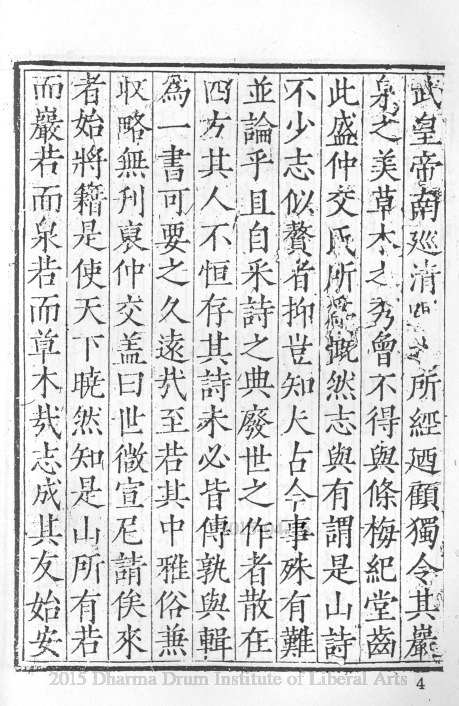 武皇帝南廵清所經廼顧獨令其巖
泉之美草木之秀曾不得與條梅紀堂齒
此盛仲交氏所慨然志與有謂是山詩
不少志似贅者抑豈知夫古今事殊有難
並論乎且自采詩之典廢世之作者散在
四方其人不恒存其詩未必皆傳孰與輯
為一書可要之久遠㢤至若其中雅俗兼
収略無刋裒仲交盖曰世微宣尼請俟來
者始將籍是使天下曉然知是山所有若
而巖若而泉若而草木㢤志成其友始安
4
2015 Dharma Drum Institute of Liberal Arts